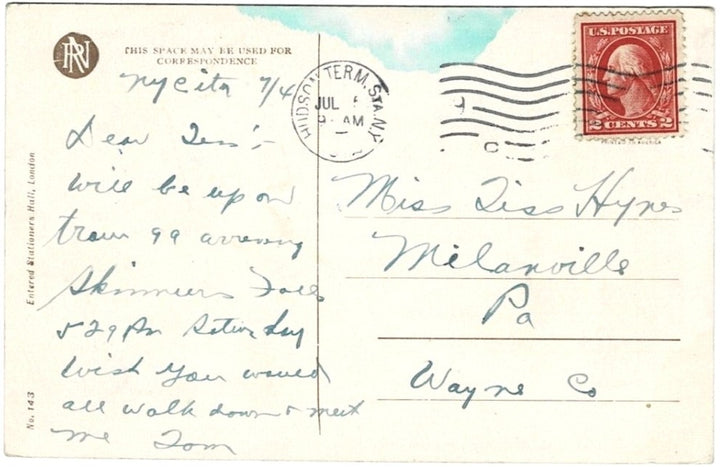 RN
THIS SPACE MAY BE USED FOR
CORRESPONDENCE
NYCity 7/4
Dear Tess:-
Will be up on
train 99 arriving
Skinners Falls
529 PM Saturday
Wish you would
all walk down & meet
me Tom
Entered Stationers Hall, London
No. 143
HUDSON TERM. STA. N.Y.
JUL
9 AM
U.S. POSTAGE
2 CENTS 2
Miss Tess Hynes
Milanville
Pa
Wayne Co